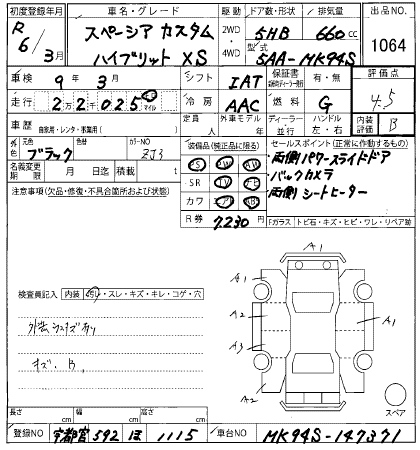 初度登録年月 車名・グレード 駆動 ドア数・形状 排気量 出品NO.
R 6/3月 スペーシア カスタム 2WD 5HB 660cc 1064
ハイブリット XS 4WD 型式 5AA-MK94S
車検 9年3月 シフト IAT 保証書 有・無 評価点
走行 22025 km マイル 冷房 AAC 燃料 G 4.5
車歴 自家用・レンタ・事業用( ) 定員 人 外車モデル 年 ディーラー 並行 ハンドル 左・右 内装評価 B
外色 元色 ブラック 色替 カラーNO ZJ3 装備品(純正品に限る) セールスポイント(正常に作動するもの)
PS PW AW 両側パワースライドドア
名義変更期限 月 日迄 積載 t SR TV ナビ バックカメラ
注意事項(欠品・修復・不具合箇所および状態) カワ エアB 両側シートヒーター
R券 7230 Fガラス トビ石・キズ・ヒビ・ワレ・リペア跡
A1
A1
検査員記入 内装 ヨゴレ・スレ・キズ・キレ・コゲ・穴
A2 A1
A3
キズ、B
A2
スペア
長さ cm 幅 cm 高さ cm
登録NO 宇都宮 592 ほ 1115 車台NO MK94S-147371